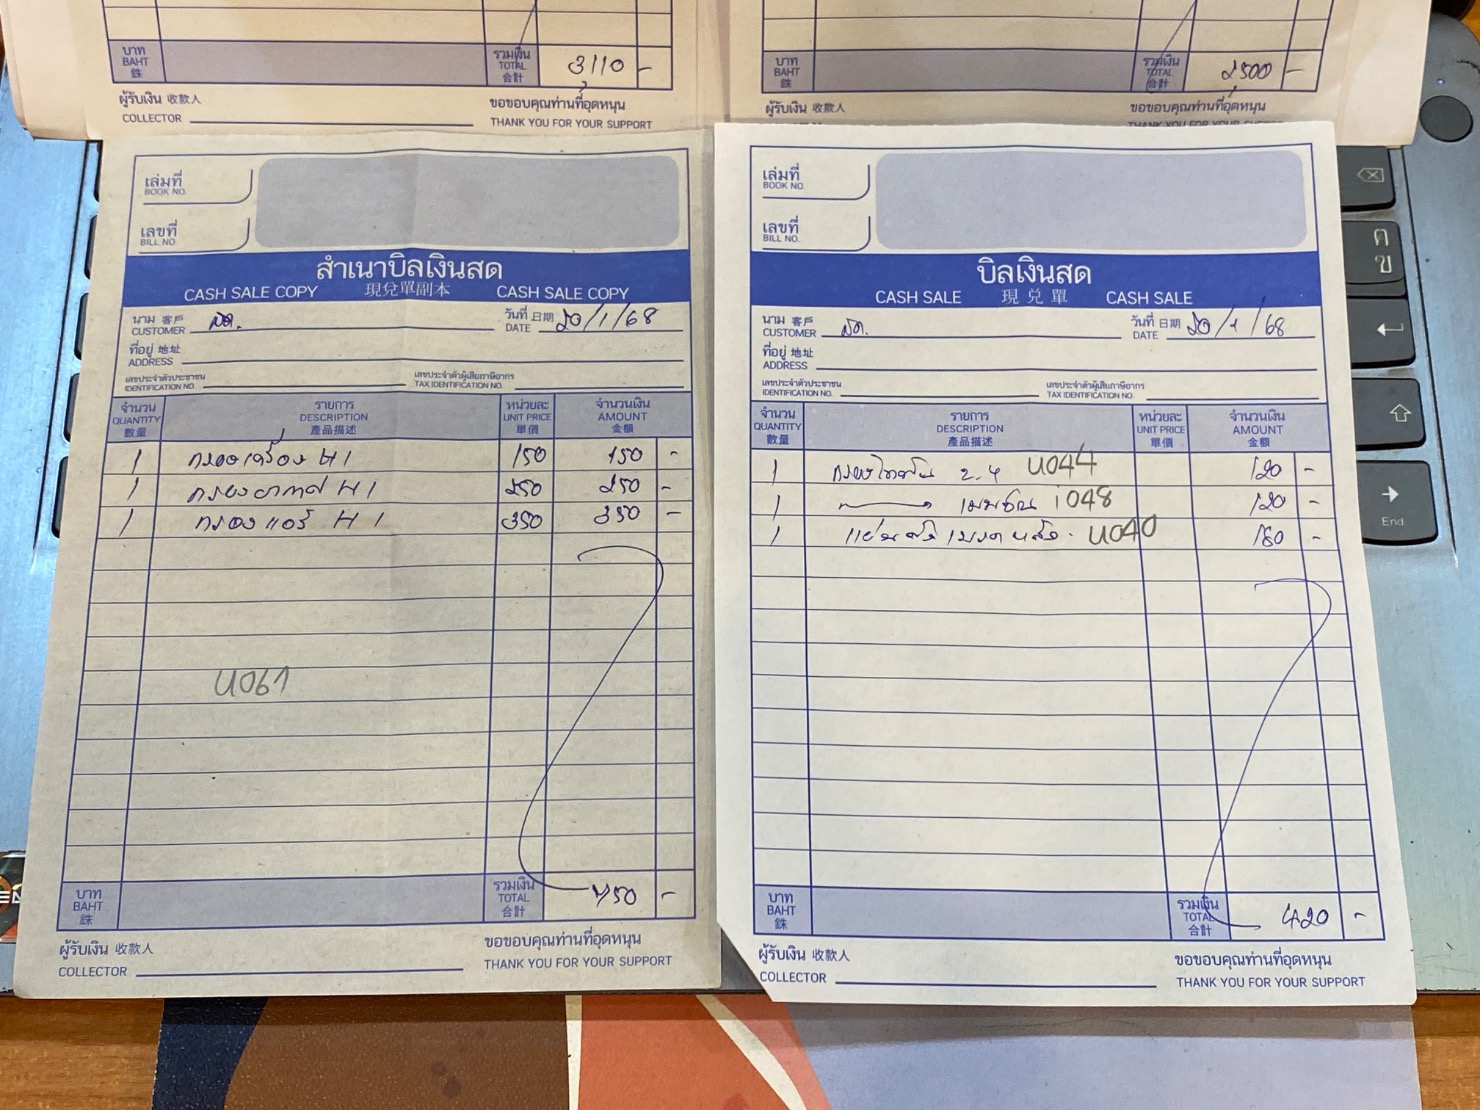 บาท
BAHT
銖
รวมเงิน
TOTAL
合計
3110 -
ผู้รับเงิน 收款人
COLLECTOR
ขอขอบคุณท่านที่อุดหนุน
THANK YOU FOR YOUR SUPPORT
บาท
BAHT
銖
รวมเงิน
TOTAL
合計
2500 -
ผู้รับเงิน 收款人
COLLECTOR
ขอขอบคุณท่านที่อุดหนุน
THANK YOU FOR YOUR SUPPORT
เล่มที่
BOOK NO.
เลขที่
BILL NO.
สำเนาบิลเงินสด
CASH SALE COPY 現兌單副本 CASH SALE COPY
นาม 客戶 วันที่ 日期
CUSTOMER สด. DATE 20/1/68
ที่อยู่ 地址
ADDRESS
เลขประจำตัวประชาชน เลขประจำตัวผู้เสียภาษีอากร
IDENTIFICATION NO. TAX IDENTIFICATION NO.
จำนวน รายการ หน่วยละ จำนวนเงิน
QUANTITY DESCRIPTION UNIT PRICE AMOUNT
數量 產品描述 單價 金額
1 กรองเครื่อง H1 150 150 -
1 กรองอากาศ H1 250 250 -
1 กรองแอร์ H1 350 350 -
บ061
บาท
BAHT
銖
รวมเงิน
TOTAL
合計
750 -
ผู้รับเงิน 收款人
COLLECTOR
ขอขอบคุณท่านที่อุดหนุน
THANK YOU FOR YOUR SUPPORT
เล่มที่
BOOK NO.
เลขที่
BILL NO.
บิลเงินสด
CASH SALE 現兌單 CASH SALE
นาม 客戶 วันที่ 日期
CUSTOMER สด. DATE 20/1/68
ที่อยู่ 地址
ADDRESS
เลขประจำตัวประชาชน เลขประจำตัวผู้เสียภาษีอากร
IDENTIFICATION NO. TAX IDENTIFICATION NO.
จำนวน รายการ หน่วยละ จำนวนเงิน
QUANTITY DESCRIPTION UNIT PRICE AMOUNT
數量 產品描述 單價 金額
1 2.4 บ044 120 -
1 048 120 -
1 บ040 180 -
บาท
BAHT
銖
รวมเงิน
TOTAL
合計
420 -
ผู้รับเงิน 收款人
COLLECTOR
ขอขอบคุณท่านที่อุดหนุน
THANK YOU FOR YOUR SUPPORT
ค
ข
End